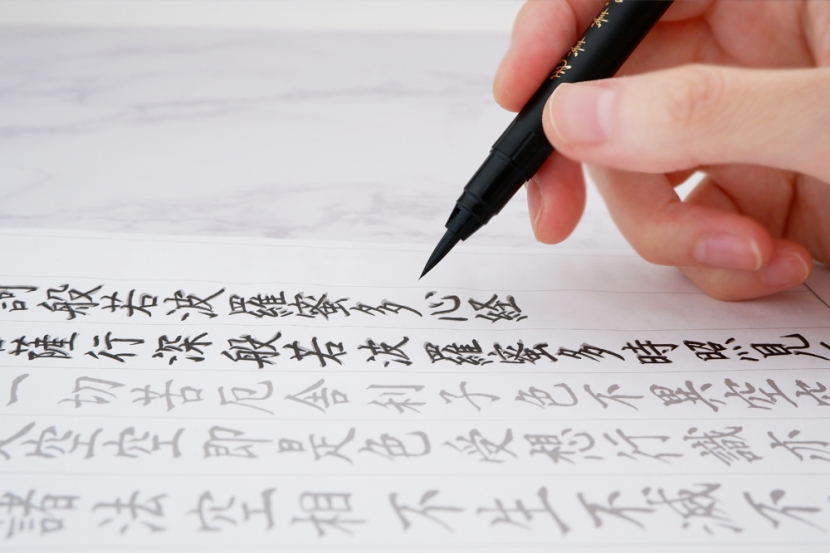 般若波羅蜜多心経
薩行深般若波羅蜜多時照見
一切苦厄舎利子色不異空空
空空即是色受想行識亦
諸法空相不生不滅不